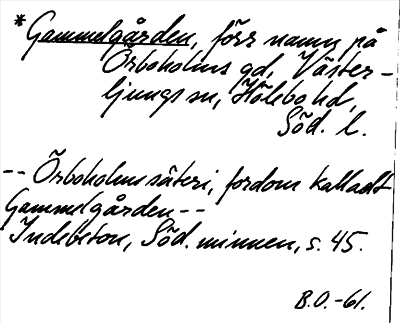 *Gammelgården, förr namn på
Örboholms gd, Väster-
ljungs sn, Hölebo hd,
Söd. l.
-- Örboholms säteri, fordom kalladt
Gammelgården --
Indebetou, Söd. minnen, s. 45.
B.O.-61.